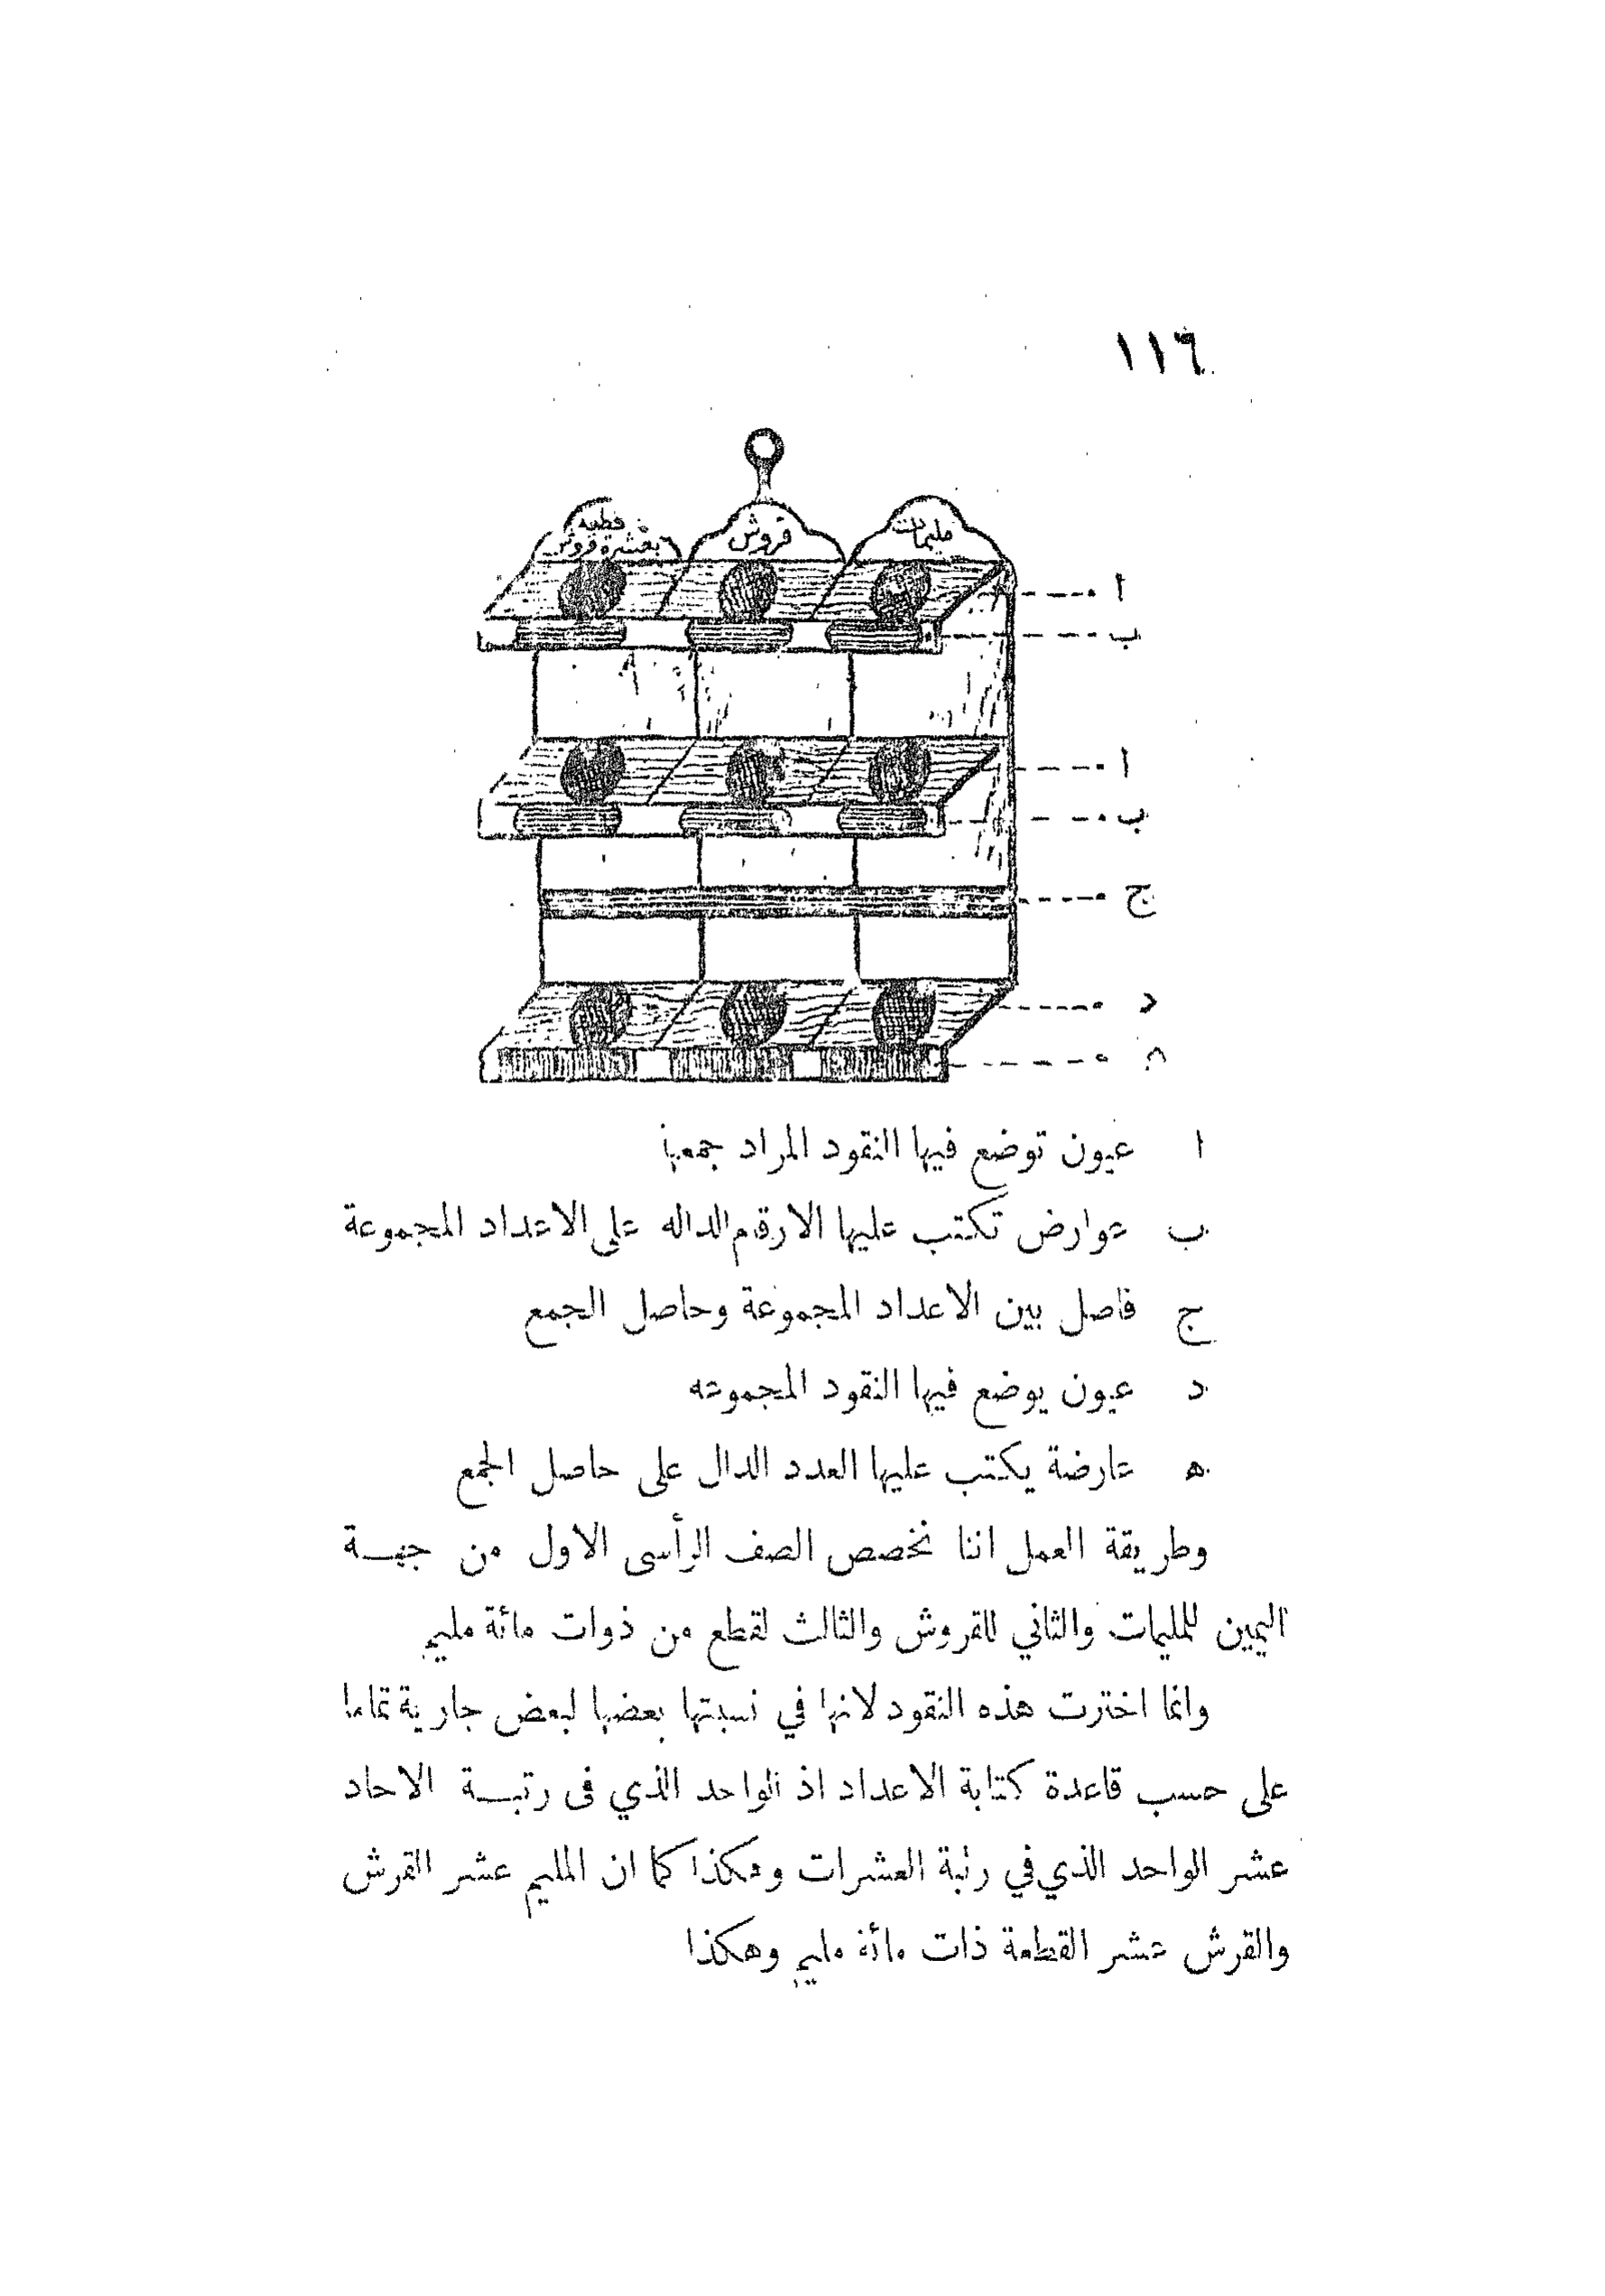 ١١٦
مليمات
قروش
قطعة
بعشرة قروش
ا
ب
ا
ب
ج
د
ه
ا عيون توضع فيها النقود المراد جمعها
ب عوارض تكتب عليها الارقام الداله على الاعداد المجموعة
ج فاصل بين الاعداد المجموعة وحاصل الجمع
د عيون يوضع فيها النقود المجموعه
ه عارضة يكتب عليها العدد الدال على حاصل الجمع
وطريقة العمل اننا نخصص الصف الرأسى الاول من جهة
اليمين للمليمات والثاني للقروش والثالث لقطع من ذوات مائة مليم
وانما اخترت هذه النقود لانها في نسبتها بعضها لبعض جارية تماما
على حسب قاعدة كتابة الاعداد اذ الواحد الذي فى رتبة الاحاد
عشر الواحد الذي في رتبة العشرات وهكذا كما ان المليم عشر القرش
والقرش عشر القطعة ذات مائة مليم وهكذا